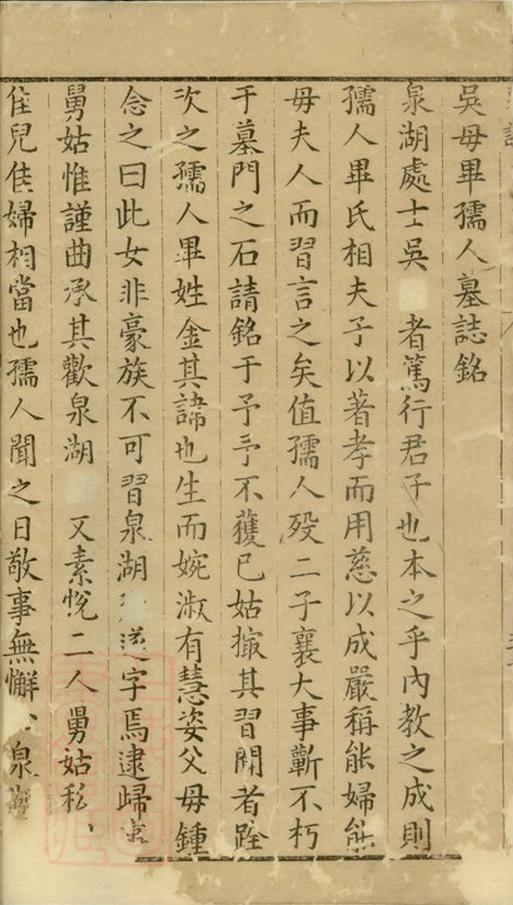 吳母畢孺人墓誌銘
泉湖處士吳 者篤行君子也本之乎內教之成則
孺人畢氏相夫子以著孝而用慈以成嚴稱能婦能
母夫人而習言之矣值孺人歿二子襄大事蘄不朽
于墓門之石請銘于予予不獲已姑撮其習聞者詮
次之孺人畢姓金其諱也生而婉淑有慧姿父母鍾
念之曰此女非豪族不可習泉湖 遂字焉逮歸事
舅姑惟謹曲承其歡泉湖 又素悅二人舅姑私、
佳兒佳婦相當也孺人聞之日敬事無懈、泉湖